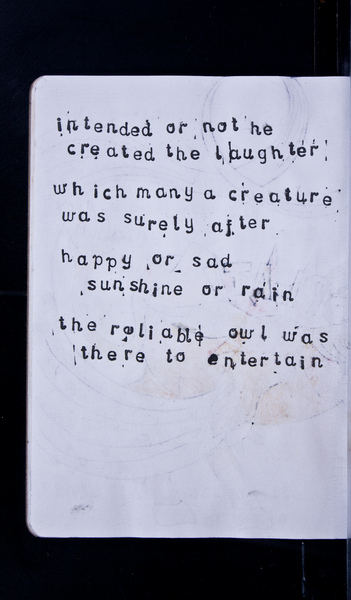 intended or not he
created the laughter
which many a creature
was surely after
happy or sad
sunshine or rain
the reliable owl was
there to entertain